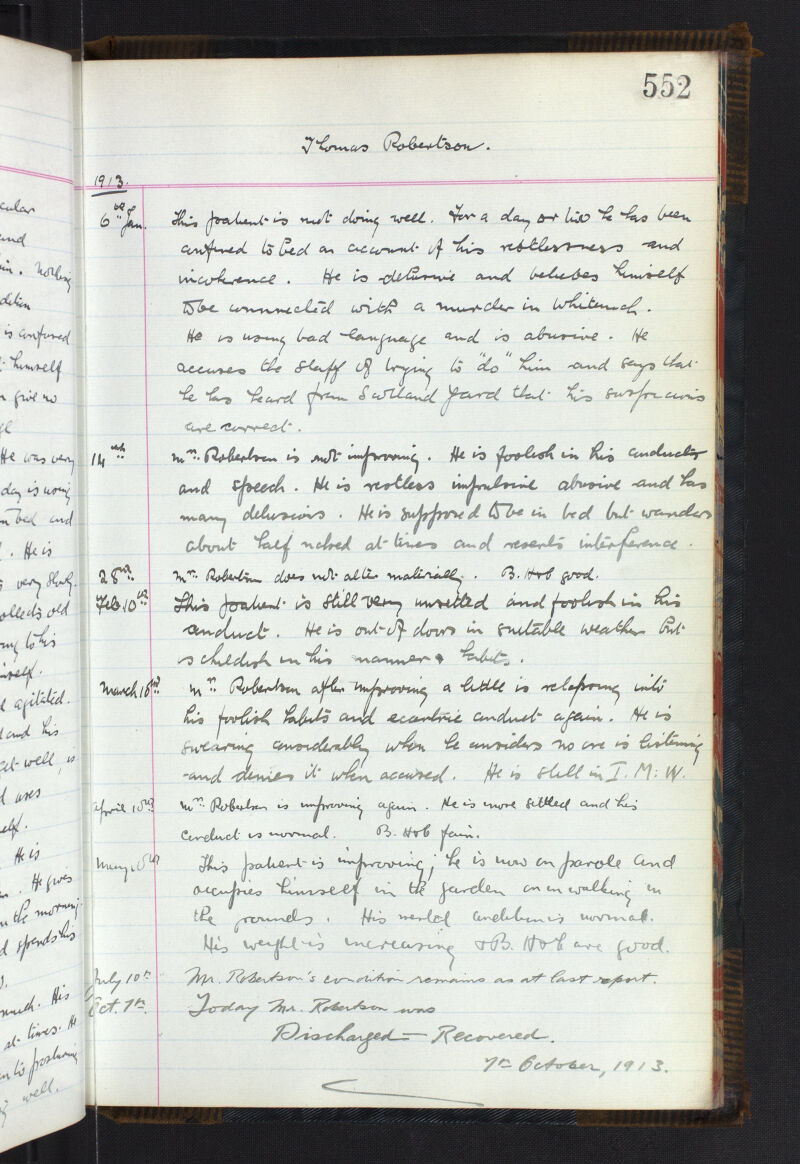 552
Thomas Robertson.
1913.
6th Jan. This patient is not doing well. For a day or two he has been
confined to bed on account of his restlessness and
incoherence. He is delusive and believes himself
to be connected with a murder in Whiteinch.
He is using bad language and is abusive. He
accuses the staff of trying to "do" him and says that
he has heard from Scotland Yard that his suspicions
are correct.
14th Mr. Robertson is not improving. He is foolish in his conduct
and speech. He is restless impulsive abusive and has
many delusions. He is supposed to be in bed but wanders
about half naked at times and resents interference.
28th Mr. Robertson does not alter materially. B. H & b good.
Feb. 10th This patient is still very unsettled and foolish in his
conduct. He is out of doors in suitable weather but
is childish in his manner & habits.
March 10th Mr. Robertson after improving a little is relapsing into
his foolish habits and eccentric conduct again. He is
swearing considerably when he considers no one is listening
and denies it when accused. He is still in I. M: W.
April 10th Mr. Robertson is improving again. He is more settled and his
conduct is normal. B. H & b fair.
May 10th This patient is improving; he is now on parole and
occupies himself in the garden or in walking in
the grounds. His mental condition is normal.
His weight is increasing & B. H & b are good.
July 10th Mr. Robertson's condition remains as at last report.
Oct. 7th. Today Mr. Robertson was
Discharged — Recovered.
7th October, 1913.
cular
and
in. nothing
dition
is confused
himself
give no
He was very
day is using
in bed and
. He is
very slowly.
collects old
ing to his
himself.
agitated.
and his
at well, is
uses
self.
He is
. He gives
in the morning
spends his
much. His
at times. He
well.